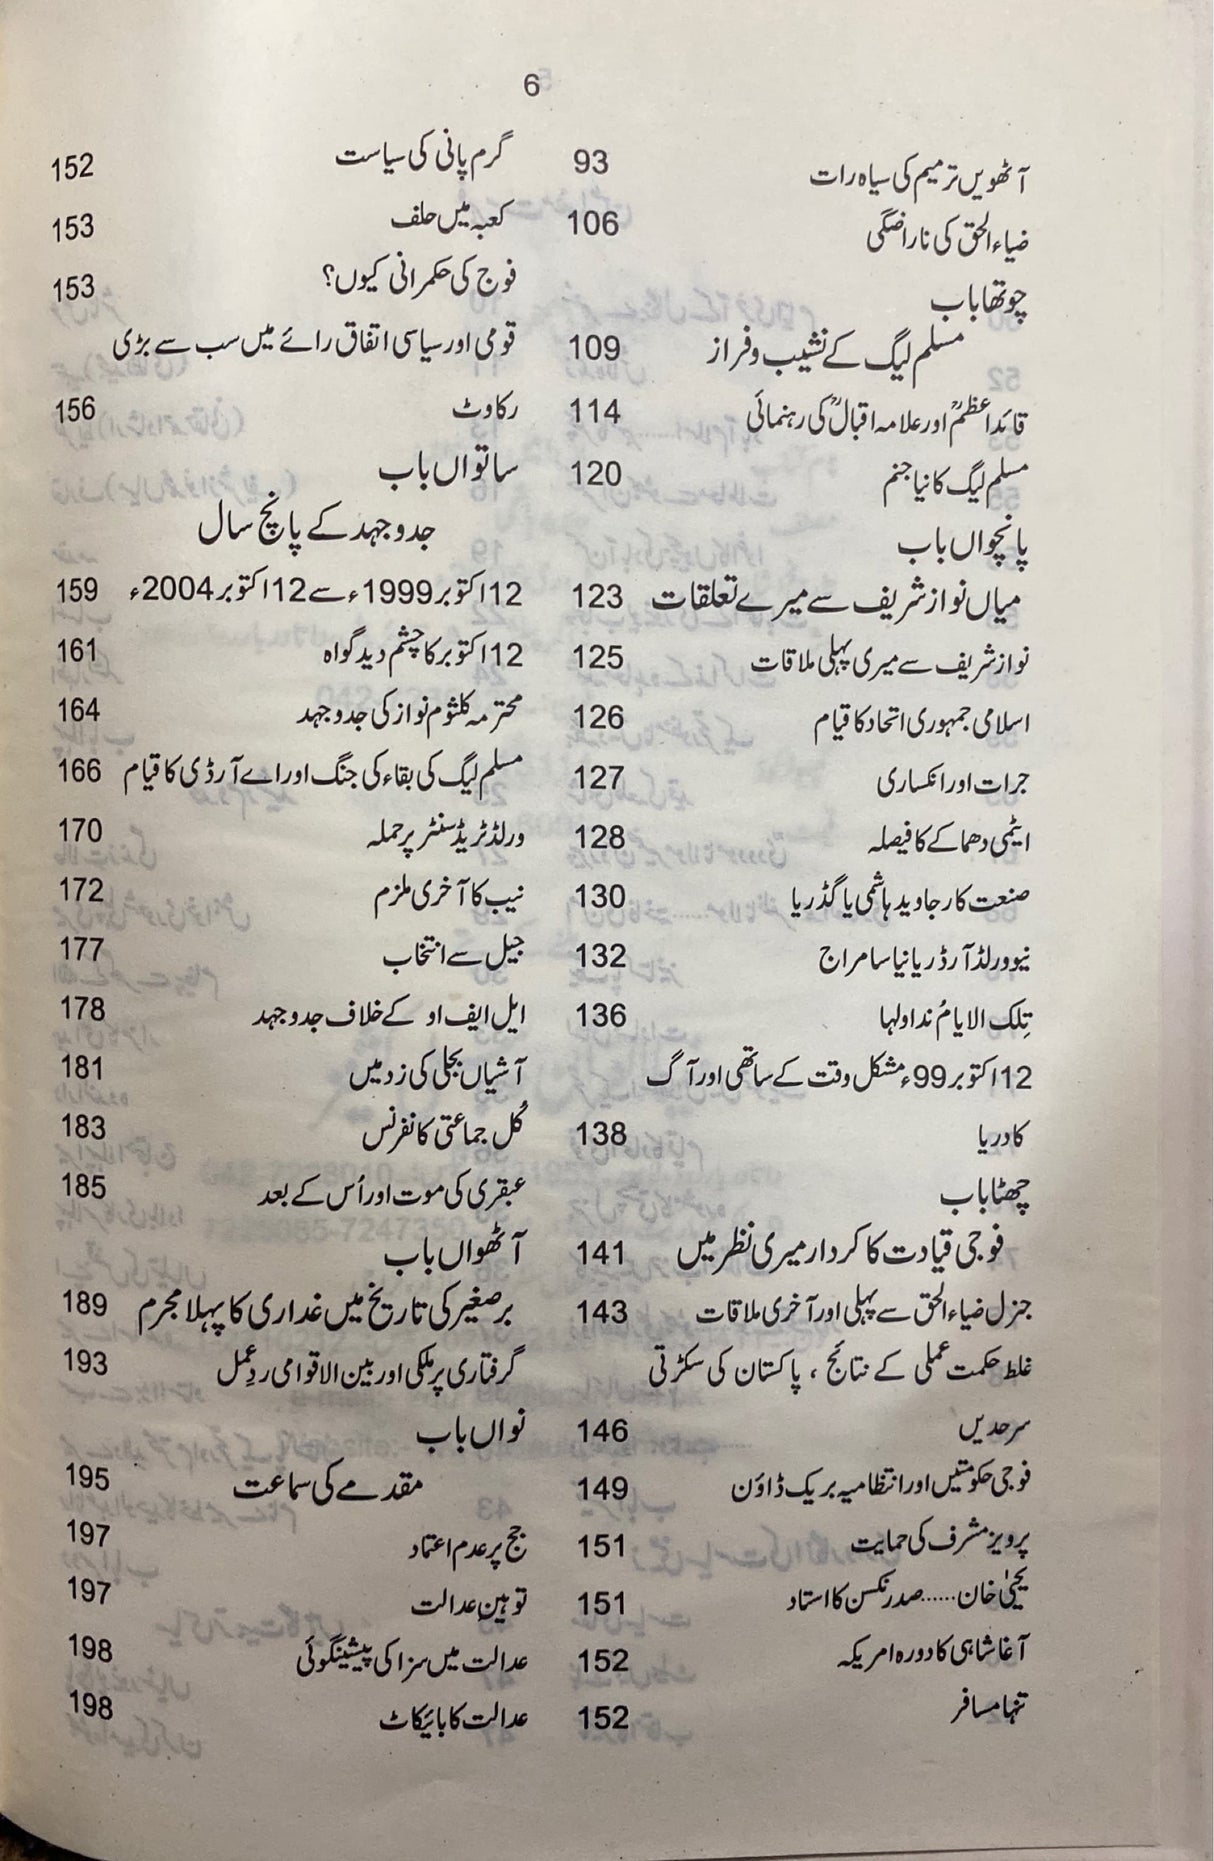 6
آٹھویں ترمیم کی سیاہ رات 93
ضیاء الحق کی ناراضگی 106
چوتھا باب
مسلم لیگ کے نشیب و فراز 109
قائداعظمؒ اور علامہ اقبالؒ کی رہنمائی 114
مسلم لیگ کا نیا جنم 120
پانچواں باب
میاں نواز شریف سے میرے تعلقات 123
نواز شریف سے میری پہلی ملاقات 125
اسلامی جمہوری اتحاد کا قیام 126
جرات اور انکساری 127
ایٹمی دھماکے کا فیصلہ 128
صنعت کار جاوید ہاشمی یا گڈریا 130
نیو ورلڈ آرڈر یا نیا سامراج 132
تِلک الایامُ نداولہا 136
12 اکتوبر 99ء مشکل وقت کے ساتھی اور آگ
کا دریا 138
چھٹا باب
فوجی قیادت کا کردار میری نظر میں 141
جنرل ضیاء الحق سے پہلی اور آخری ملاقات 143
غلط حکمت عملی کے نتائج ، پاکستان کی سکڑتی
سرحدیں 146
فوجی حکومتیں اور انتظامیہ بریک ڈاؤن 149
پرویز مشرف کی حمایت 151
یحییٰ خان......صدر نکسن کا استاد 151
آغا شاہی کا دورہ امریکہ 152
تنہا مسافر 152
گرم پانی کی سیاست 152
کعبہ میں حلف 153
فوج کی حکمرانی کیوں؟ 153
قومی اور سیاسی اتفاق رائے میں سب سے بڑی
رکاوٹ 156
ساتواں باب
جدوجہد کے پانچ سال
12 اکتوبر 1999ء سے 12 اکتوبر 2004ء 159
12 اکتوبر کا چشم دید گواہ 161
محترمہ کلثوم نواز کی جدوجہد 164
مسلم لیگ کی بقاء کی جنگ اور اے آر ڈی کا قیام 166
ورلڈ ٹریڈ سنٹر پر حملہ 170
نیب کا آخری ملزم 172
جیل سے انتخاب 177
ایل ایف او کے خلاف جدوجہد 178
آشیاں بجلی کی زد میں 181
کُل جماعتی کانفرنس 183
عبقری کی موت اور اُس کے بعد 185
آٹھواں باب
برصغیر کی تاریخ میں غداری کا پہلا مجرم 189
گرفتاری پر ملکی اور بین الاقوامی ردِعمل 193
نواں باب
مقدمے کی سماعت 195
جج پر عدم اعتماد 197
توہینِ عدالت 197
عدالت میں سزا کی پیشینگوئی 198
عدالت کا بائیکاٹ 198